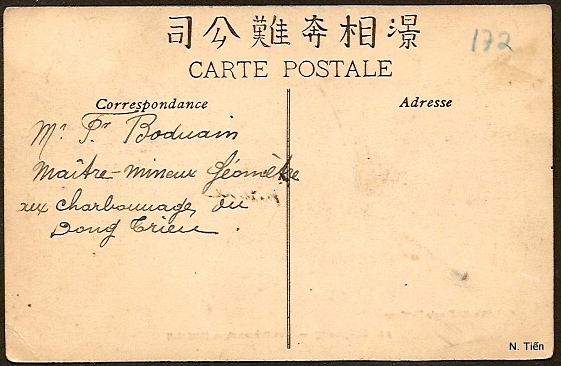 司公難奔相濎
172
CARTE POSTALE
Correspondance
Adresse
Mr Pr Boduain
Maître-mineur Géomètre
aux charbonnages du
Dong Trieu.
N. Tiến